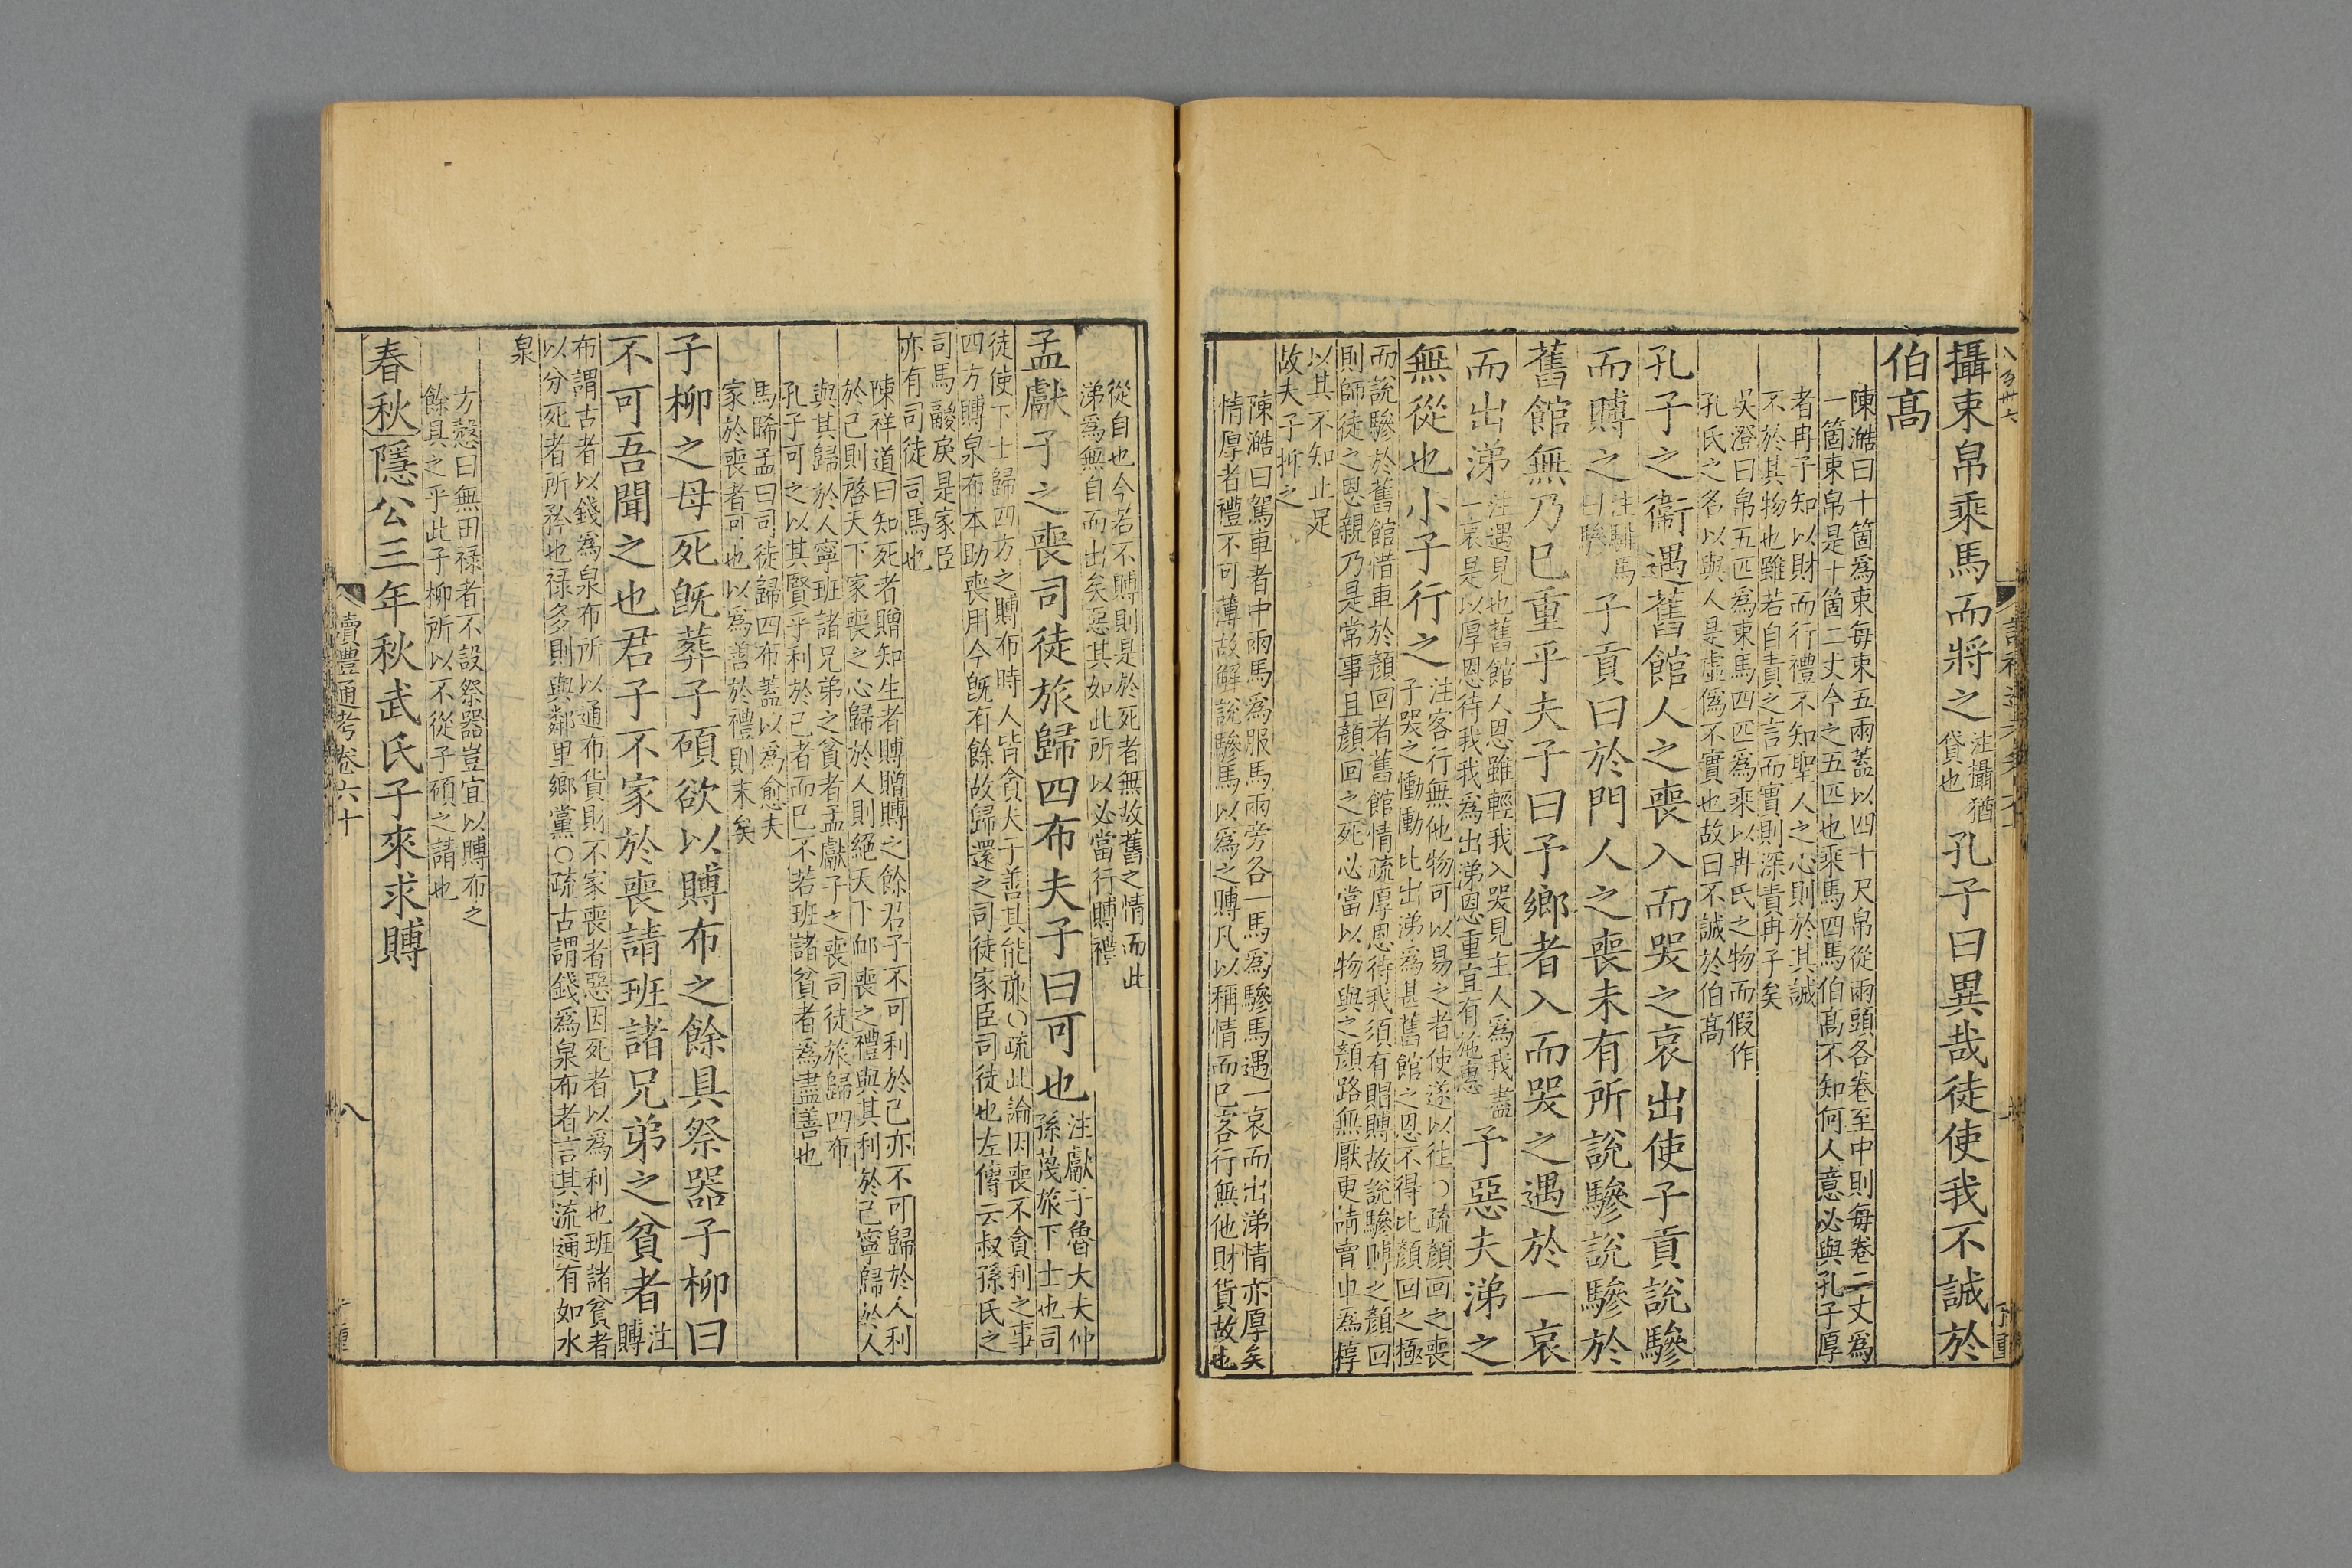 攝束帛乘馬而將之注攝猶貸也孔子曰異哉徒使我不誠於
伯高
陳澔曰十箇爲束每束五兩蓋以四十尺帛從兩頭各卷至中則每卷二丈爲
一箇束帛是十箇二丈今之五匹也乘馬四馬伯高不知何人意必與孔子厚
者冉子知以財而行禮不知聖人之心則於其誠
不於其物也雖若自責之言而實則深責冉子矣
吳澄曰帛五匹爲束馬四匹爲乘以冉氏之物而假作
孔氏之名以與人是虛僞不實也故曰不誠於伯高
孔子之衞遇舊館人之喪入而哭之哀出使子貢說驂
而賻之注騑馬曰驂子貢曰於門人之喪未有所說驂說驂於
舊館無乃已重乎夫子曰予鄉者入而哭之遇於一哀
而出涕注遇見也舊館人恩雖輕我入哭見主人爲我盡一哀是以厚恩待我我爲出涕恩重宜有施惠予惡夫涕之
無從也小子行之注客行無他物可以易之者使遂以往○疏顏回之喪子哭之慟慟比出涕爲甚舊館之恩不得比顏回之極
而說驂於舊館惜車於顏回者舊館情疏厚恩待我須有賵賻故說驂賻之顏回
則師徒之恩親乃是常事且顏回之死必當以物與之顏路無厭更請賣車爲椁
以其不知止足
故夫子抑之
陳澔曰駕車者中兩馬爲服馬兩旁各一馬爲驂馬遇一哀而出涕情亦厚矣
情厚者禮不可薄故解說驂馬以爲之賻凡以稱情而已客行無他財貨故也
從自也今若不賻則是於死者無故舊之情而此
涕爲無自而出矣惡其如此所以必當行賻禮
孟獻子之喪司徒旅歸四布夫子曰可也注獻子魯大夫仲孫蔑旅下士也司
徒使下士歸四方之賻布時人皆貪夫子善其能廉○疏此論因喪不貪利之事
四方賻泉布本助喪用今既有餘故歸還之司徒家臣司徒也左傳云叔孫氏之
司馬鬷戾是家臣
亦有司徒司馬也
陳祥道曰知死者贈知生者賻贈賻之餘君子不可利於己亦不可歸於人利
於己則啓天下家喪之心歸於人則絕天下䘏喪之禮與其利於己寧歸於人
與其歸於人寧班諸兄弟之貧者孟獻子之喪司徒旅歸四布
孔子可之以其賢乎利於己者而已不若班諸貧者爲盡善也
馬晞孟曰司徒歸四布蓋以爲愈夫
家於喪者可也以爲善於禮則末矣
子柳之母死旣葬子碩欲以賻布之餘具祭器子柳曰
不可吾聞之也君子不家於喪請班諸兄弟之貧者注賻
布謂古者以錢爲泉布所以通布貨財不家喪者惡因死者以爲利也班諸貧者
以分死者所矜也祿多則與鄰里鄉黨○疏古謂錢爲泉布者言其流通有如水
泉
方慤曰無田祿者不設祭器豈宜以賻布之
餘具之乎此子柳所以不從子碩之請也
春秋隱公三年秋武氏子來求賻
讀禮通考卷六十
八